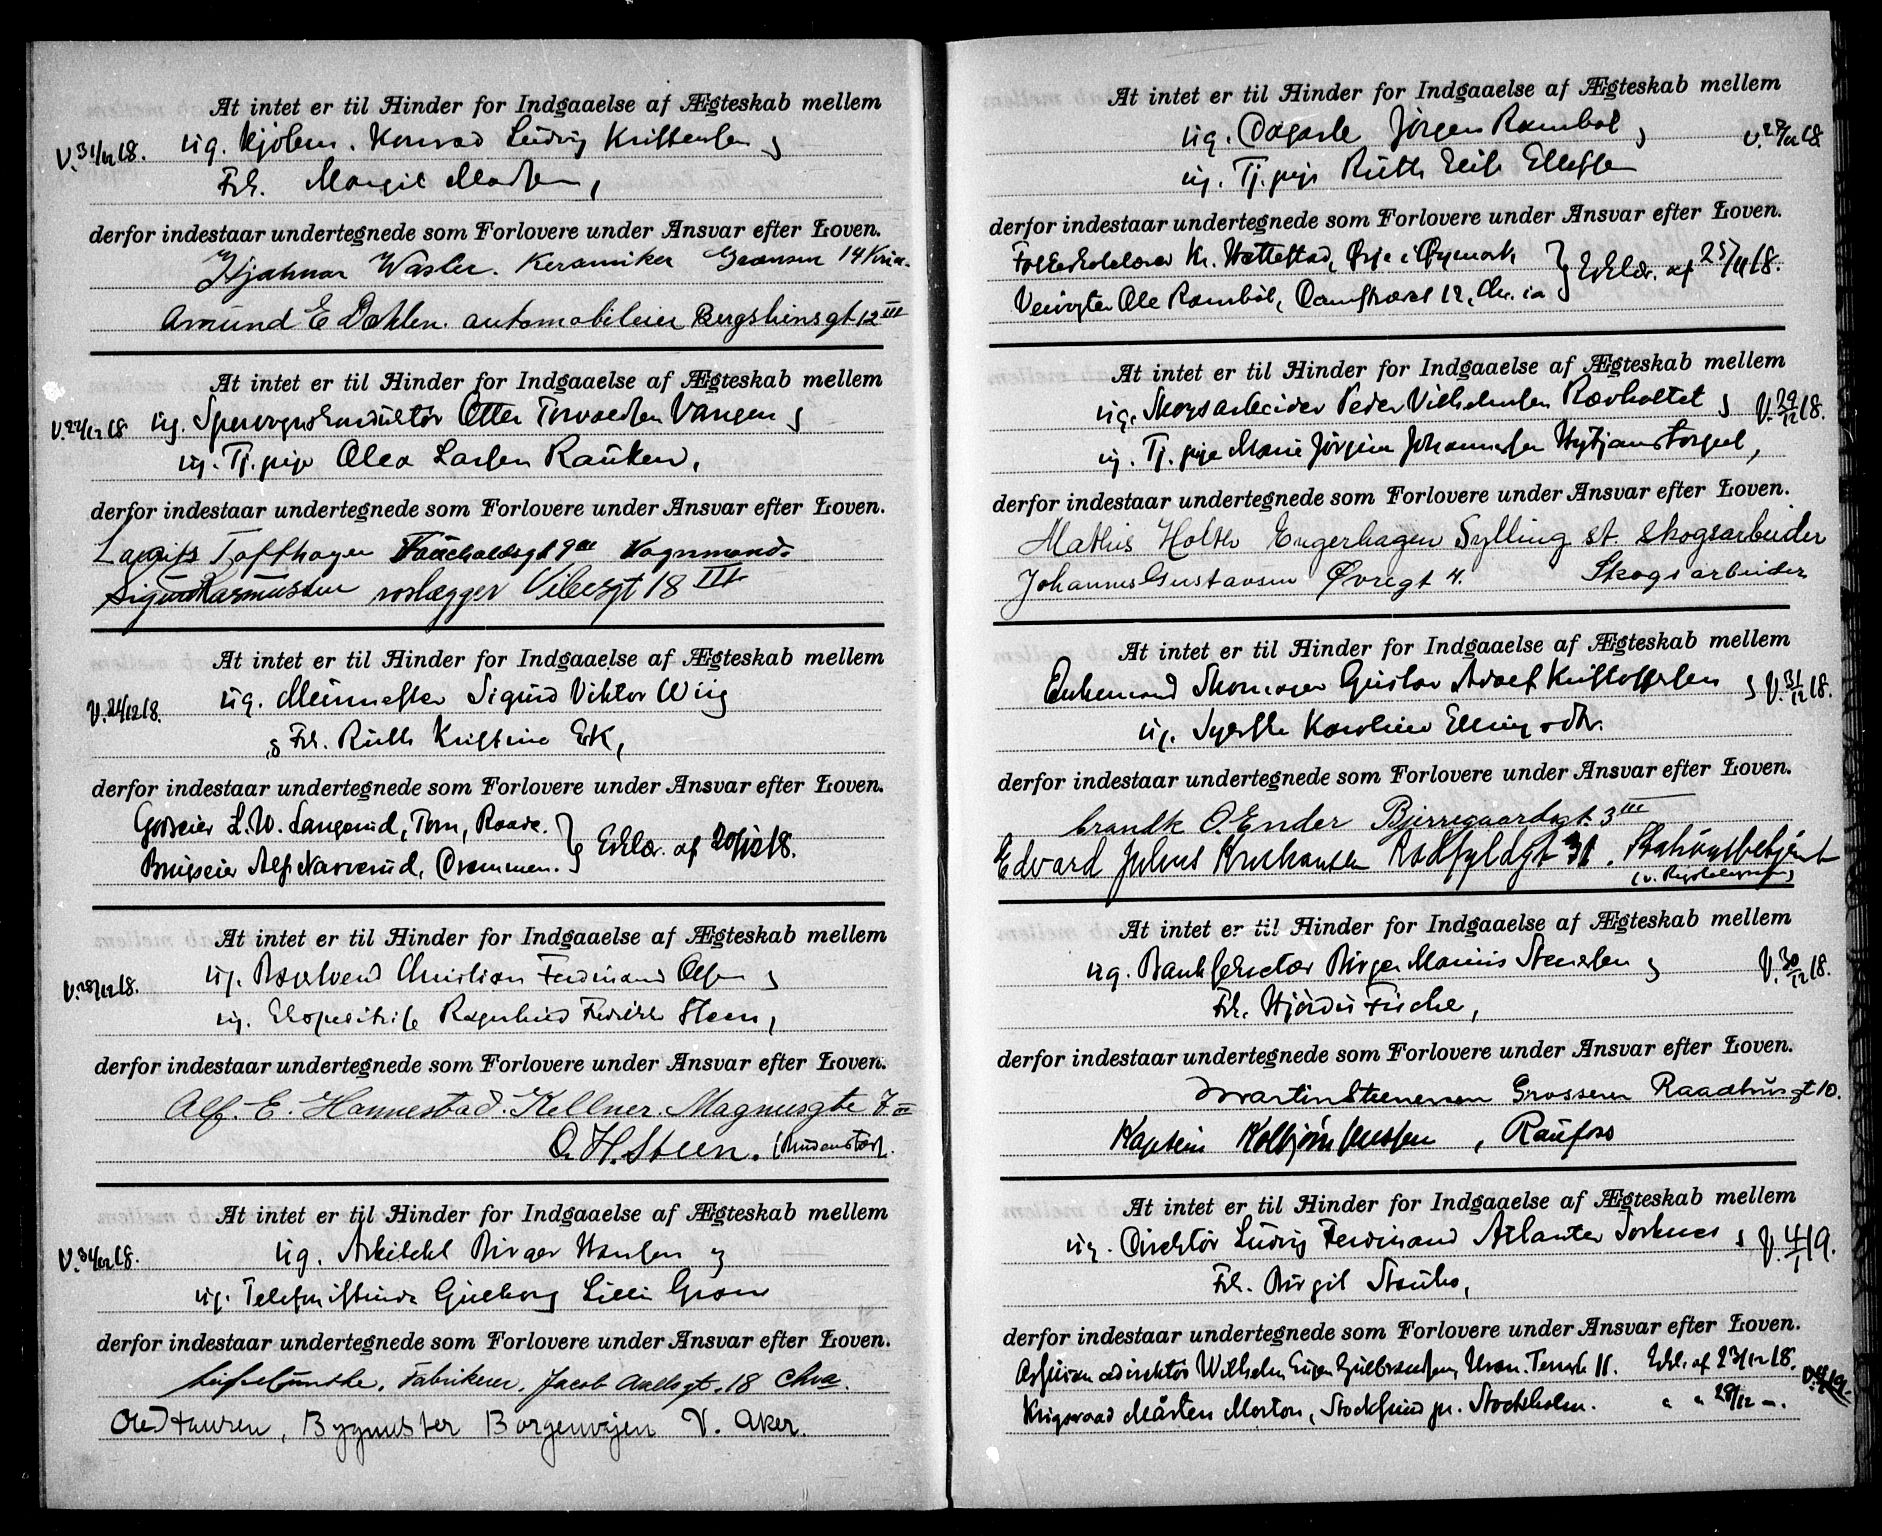 At intet er til Hinder for Indgaaelse af Ægteskab mellem
V. 31/12 18. Ug. Kjøbm. Konrad Ludvig Kristensen og
Frk. Margit Madsen,
derfor indestaar undertegnede som Forlovere under Ansvar efter Loven.
Hjalmar Wasler. Keramiker Grænsen 14 Kria.
Amund E Dahlen. automobileier Bergsliensgt. 12 III
At intet er til Hinder for Indgaaelse af Ægteskab mellem
V. 22/12 18 Ug. Sporvognskonduktør Otter Torvaldsen Vangen og
ug. Tj.pige Olea Larsen Rauken,
derfor indestaar undertegnede som Forlovere under Ansvar efter Loven.
Laurits Tofthagen Fauchaldsgt 9 III Vognmand.
Sigurd Rasmussen rørlægger Vibesgt 18 III
At intet er til Hinder for Indgaaelse af Ægteskab mellem
V. 24/12 18. Ug. Sigurd Viktor Wiig
og Frk. Ruth Kristine Ek,
derfor indestaar undertegnede som Forlovere under Ansvar efter Loven.
Godseier L. W. Langerud, Tom, Raade.
Brugseier Alf Narverud, Drammen. } Erklær. af 20/12 18.
At intet er til Hinder for Indgaaelse af Ægteskab mellem
V. 28/12 18. Ug. Christian Ferdinand Olsen og
ug. Ekspeditrise Ragnhild Steen,
derfor indestaar undertegnede som Forlovere under Ansvar efter Loven.
Alf. E. Hannestad. Kellner. Magnusgte 7
O. H. Steen.
At intet er til Hinder for Indgaaelse af Ægteskab mellem
V. 31/12 18. Ug. Arkitekt Birger Hansen og
ug. Telefonistinde Gueborg Lilli Gron
derfor indestaar undertegnede som Forlovere under Ansvar efter Loven.
Fabrikeier, Jacob Aallsgt. 18 Chra.
Ole Hansen, Bygmester Borgenveien V. Aker.
At intet er til Hinder for Indgaaelse af Ægteskab mellem
Ug. Dagarb. Jørgen Rambøl og V. 28/12 18.
ug. Tj.pige Ruth Elise Ellefsen
derfor indestaar undertegnede som Forlovere under Ansvar efter Loven.
Folkeskolelærer Kr. Hattestad, Ørje i Øymark
Ole Rambøl, 12, Chr.ia } Erklær. af 25/11 18.
At intet er til Hinder for Indgaaelse af Ægteskab mellem
Ug. Skogsarbeider Peder Vilhelmsen Rævholtet og V. 29/12 18.
ug. Tj.pige Marie Jørgine Johannesen
derfor indestaar undertegnede som Forlovere under Ansvar efter Loven.
Mathis Holth Engerhagen Sylling st. Skogsarbeider
Johannes Gustavsen Øvregt 4. Skogsarbeider
At intet er til Hinder for Indgaaelse af Ægteskab mellem
Enkemand Skomager Gustav Adolf Kristoffersen og V. 31/12 18.
ug. Syerske Karoline Ellingsdtr.
derfor indestaar undertegnede som Forlovere under Ansvar efter Loven.
brandk O. Ender Bjerregaardsgt. 3 III
Edvard Julius Kruhansen Rodfyldgt 31. Stationsbetjent
At intet er til Hinder for Indgaaelse af Ægteskab mellem
Ug. Banksekretær Birger Marius Stenersen og V. 30/12 18.
Frk. Hjørdis Fische,
derfor indestaar undertegnede som Forlovere under Ansvar efter Loven.
Martin Stenersen Grosserer Raadhusgt 10.
Kaptein Kolbjørn Knudsen, Raufoss
At intet er til Hinder for Indgaaelse af Ægteskab mellem
Ug. Direktør Ludvig Ferdinand Atlanter Torknes og V. 4/1 19.
Frk. Birgit Stouho,
derfor indestaar undertegnede som Forlovere under Ansvar efter Loven.
Assurancedirektør Wilhelm Eugen Gulbransen, 11. Erkl. af 23/12 18.
Krigsraad Mårten Morton, Stocksund pr. Stockholm. " " 28/12 –.